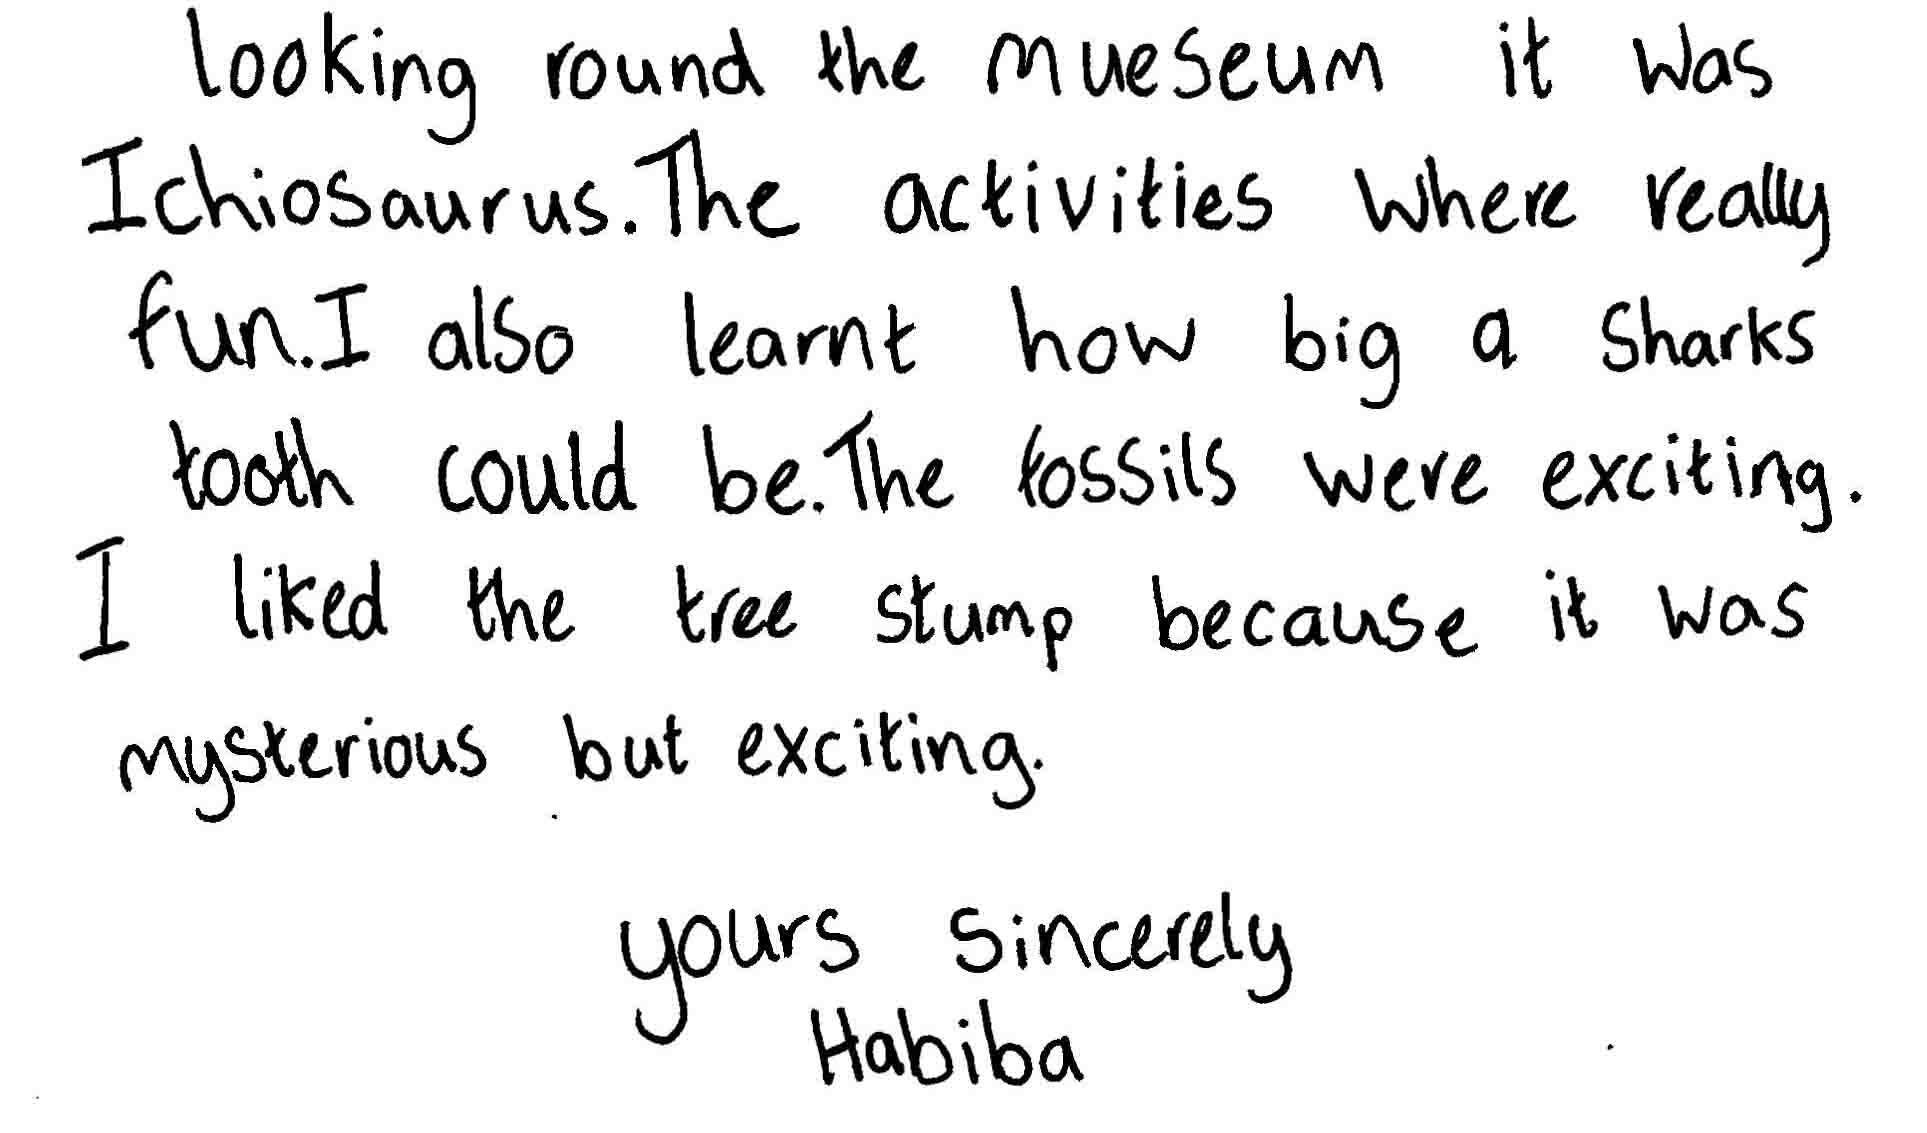 looking round the mueseum it was
Ichiosaurus.The activities where really
fun.I also learnt how big a sharks
tooth could be.The fossils were exciting.
I liked the tree stump because it was
mysterious but exciting.
yours sincerely
Habiba